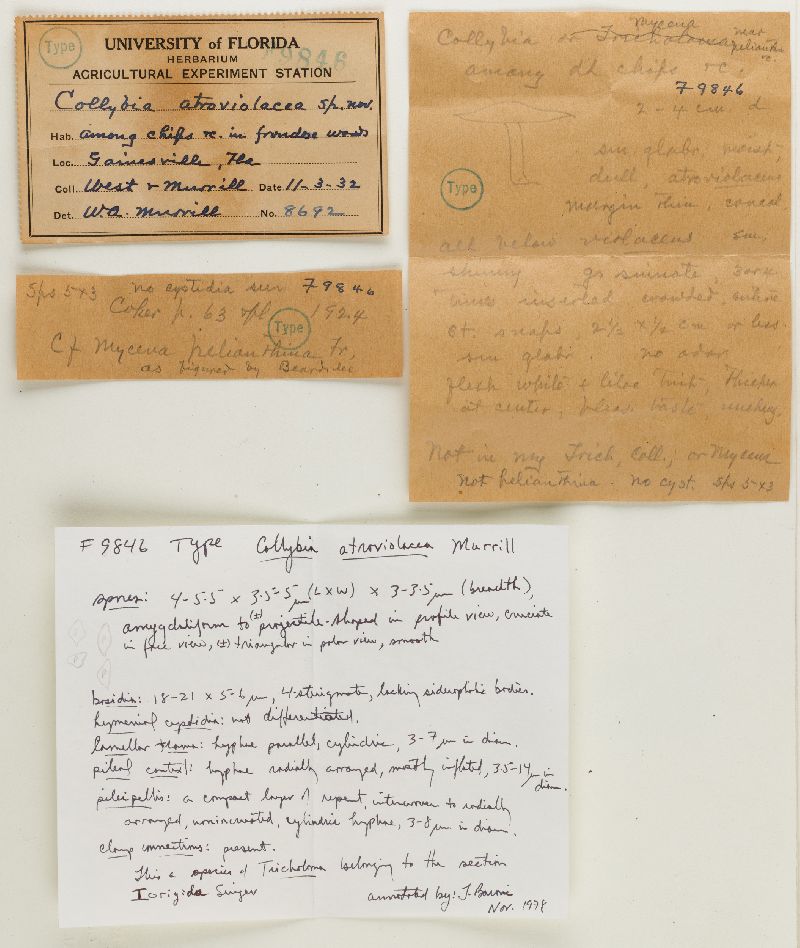 Type
UNIVERSITY of FLORIDA
F9846
HERBARIUM
AGRICULTURAL EXPERIMENT STATION
Collybia atroviolacea sp. nov.
Hab. among chips rc. in frondose woods
Loc. Gainesville, Fla
Coll. West & Murrill Date 11-3-32
Det. W.A. Murrill No. 8692
Sps 5x3 no cystidia seen F9846
Coker p. 63 spl 1924
Type
Cf Mycena pelianthina Fr,
as figured by Beardslee
Mycena near
Collybia or Tricholoma pelianthina
among dh chips rc.
F9846
2-4 cm d
sm glabr moist,
Type
dull atroviolaceus
margin thin, concol.
all below violaceus sm,
shiny gs sinuate,
times inserted crowded, entire
et. 2½ x ½ cm or less
sm glabr. no odor
flesh white & lilac tint, thicker
at center,
Not in my Trich, Coll., or Mycena
Not pelianthina. no cyst. Sps 5x3
F 9846 Type Collybia atroviolacea Murrill
spores: 4-5.5 x 3.5-5 µm (L x W) x 3-3.5 µm (breadth),
amygdaliform to (±) projectile-shaped in profile view, cruciate
in face view, (±) triangular in polar view, smooth
basidia: 18-21 x 5-6 µm, 4-sterigmate, lacking siderophilic bodies.
hymenial cystidia: not differentiated.
lamellar trama: hyphae parallel, cylindric, 3-7 µm in diam.
pileal context: hyphae radially arranged, mostly inflated, 3.5-14 µm in
diam.
pileipellis: a compact layer of repent, interwoven to radially
arranged, nonincrusted, cylindric hyphae, 3-8 µm in diam.
clamp connections: present.
This a species of Tricholoma belonging to the section
Iorigida Singer
annotated by: T. Baroni
Nov. 1978